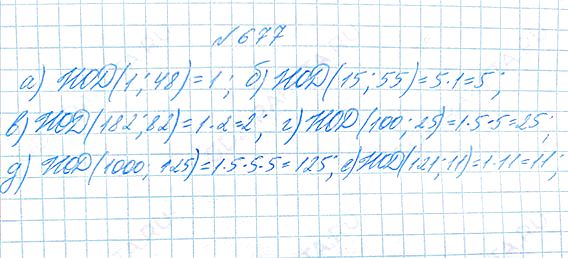 №677
а) НОД(1; 48)=1; б) НОД(15; 55)=5·1=5;
в) НОД(182; 82)=1·2=2; г) НОД(100; 25)=1·5·5=25;
д) НОД(1000; 125)=1·5·5·5=125; е) НОД(121; 11)=1·11=11;